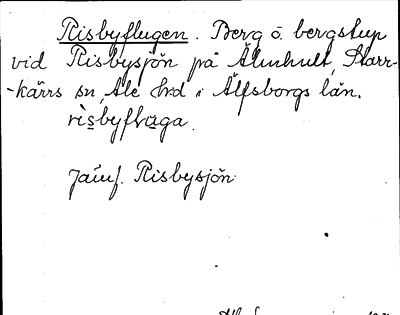 Risbyflugen. Berg o. bergstup
vid Risbysjön på Älmhult, Starr-
-kärrs sn, Ale hd i Älfsborgs län.
rìsbyflɷga.
Jämf. Risbysjön